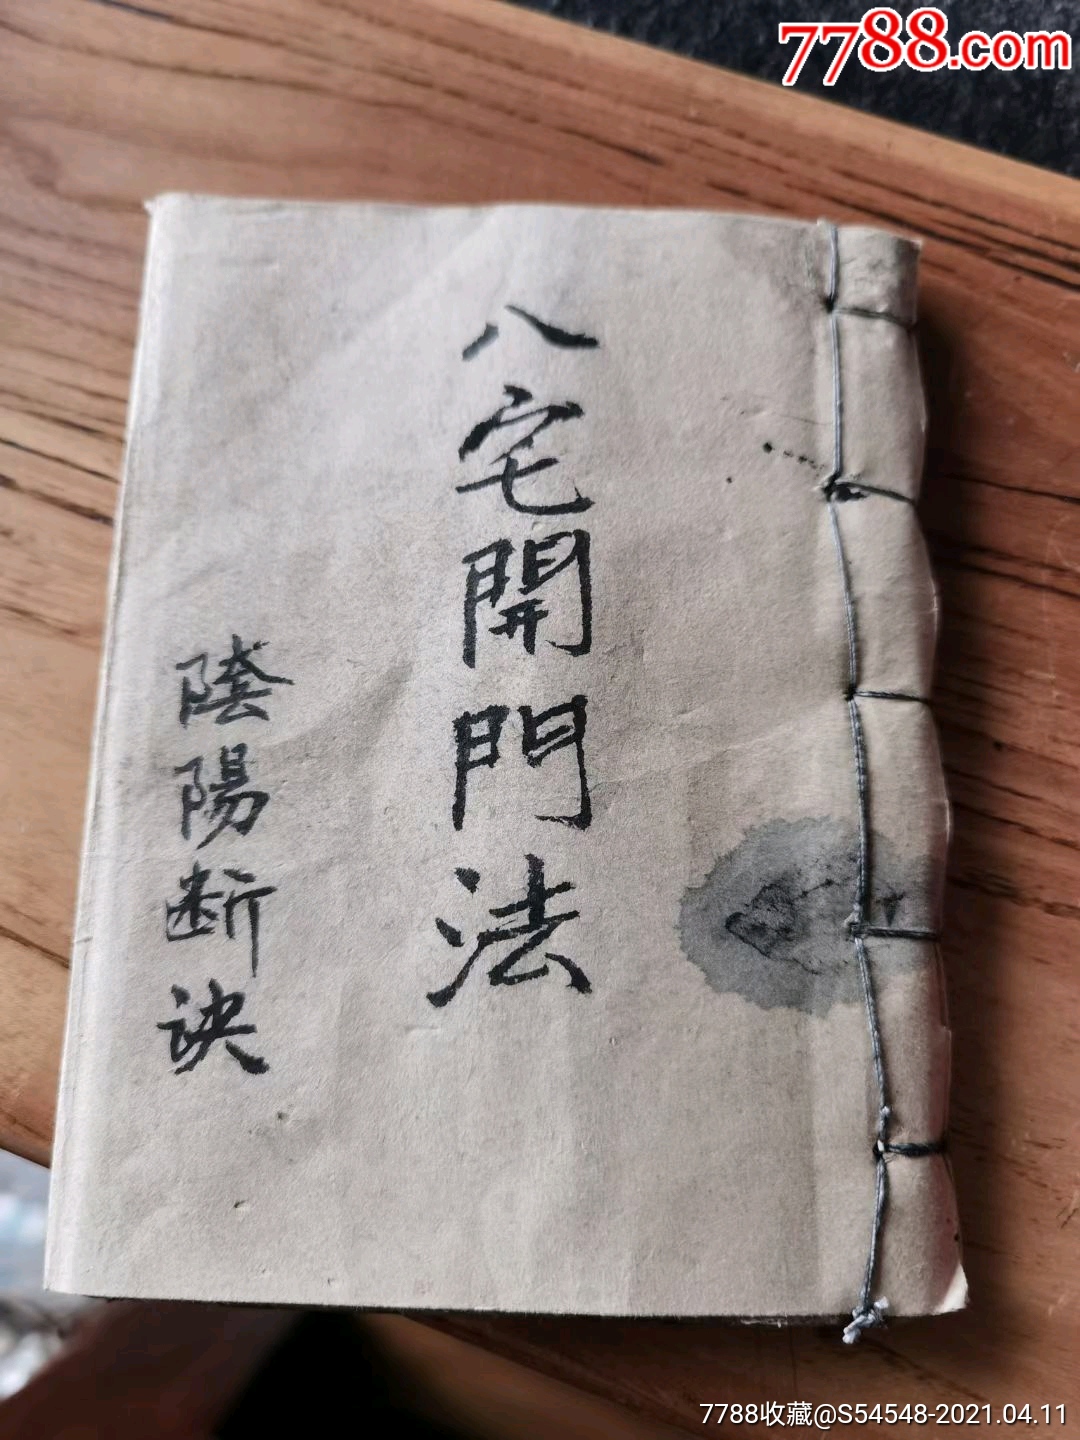 7788.com
八宅開門法
陰陽断诀
7788收藏@S54548-2021.04.11